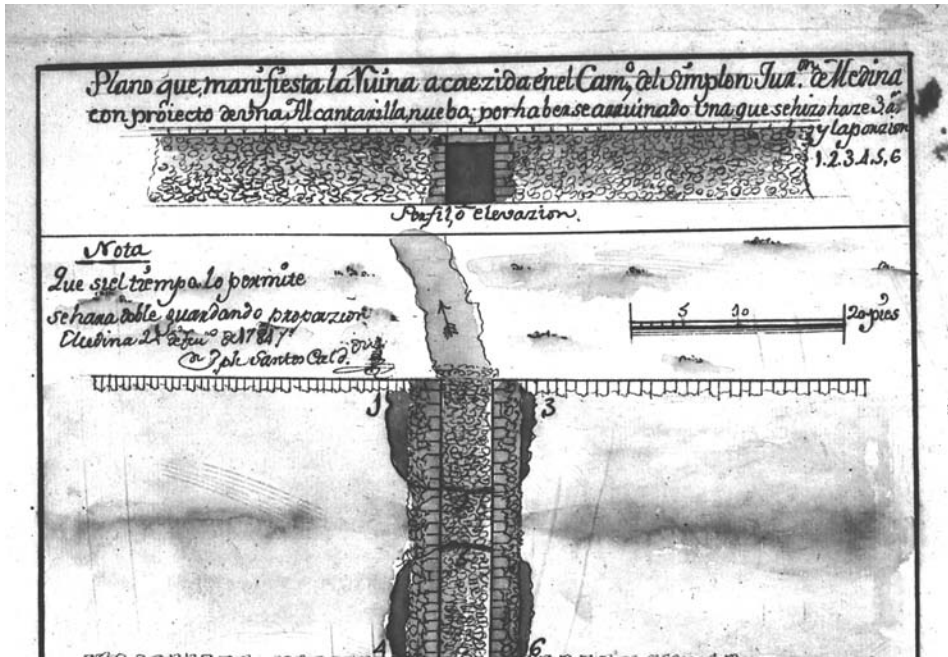 Plano que, manifiesta la Ruina acaezida en el Cam.º del Simplon Jur.on de Medina
con proiecto de vna Alcantarilla, nueba; por haberse arruinado vna que se hizo haze 3 a.s
y la porzion
1. 2. 3. 4. 5. 6
Porfil, o elevazion.
Nota
Que si el tiempo lo permite
se hara doble guardando proporzion
Medina 2 de de 1784
Jph Santos Cald.
5 10 20 pies
1 3
4 6